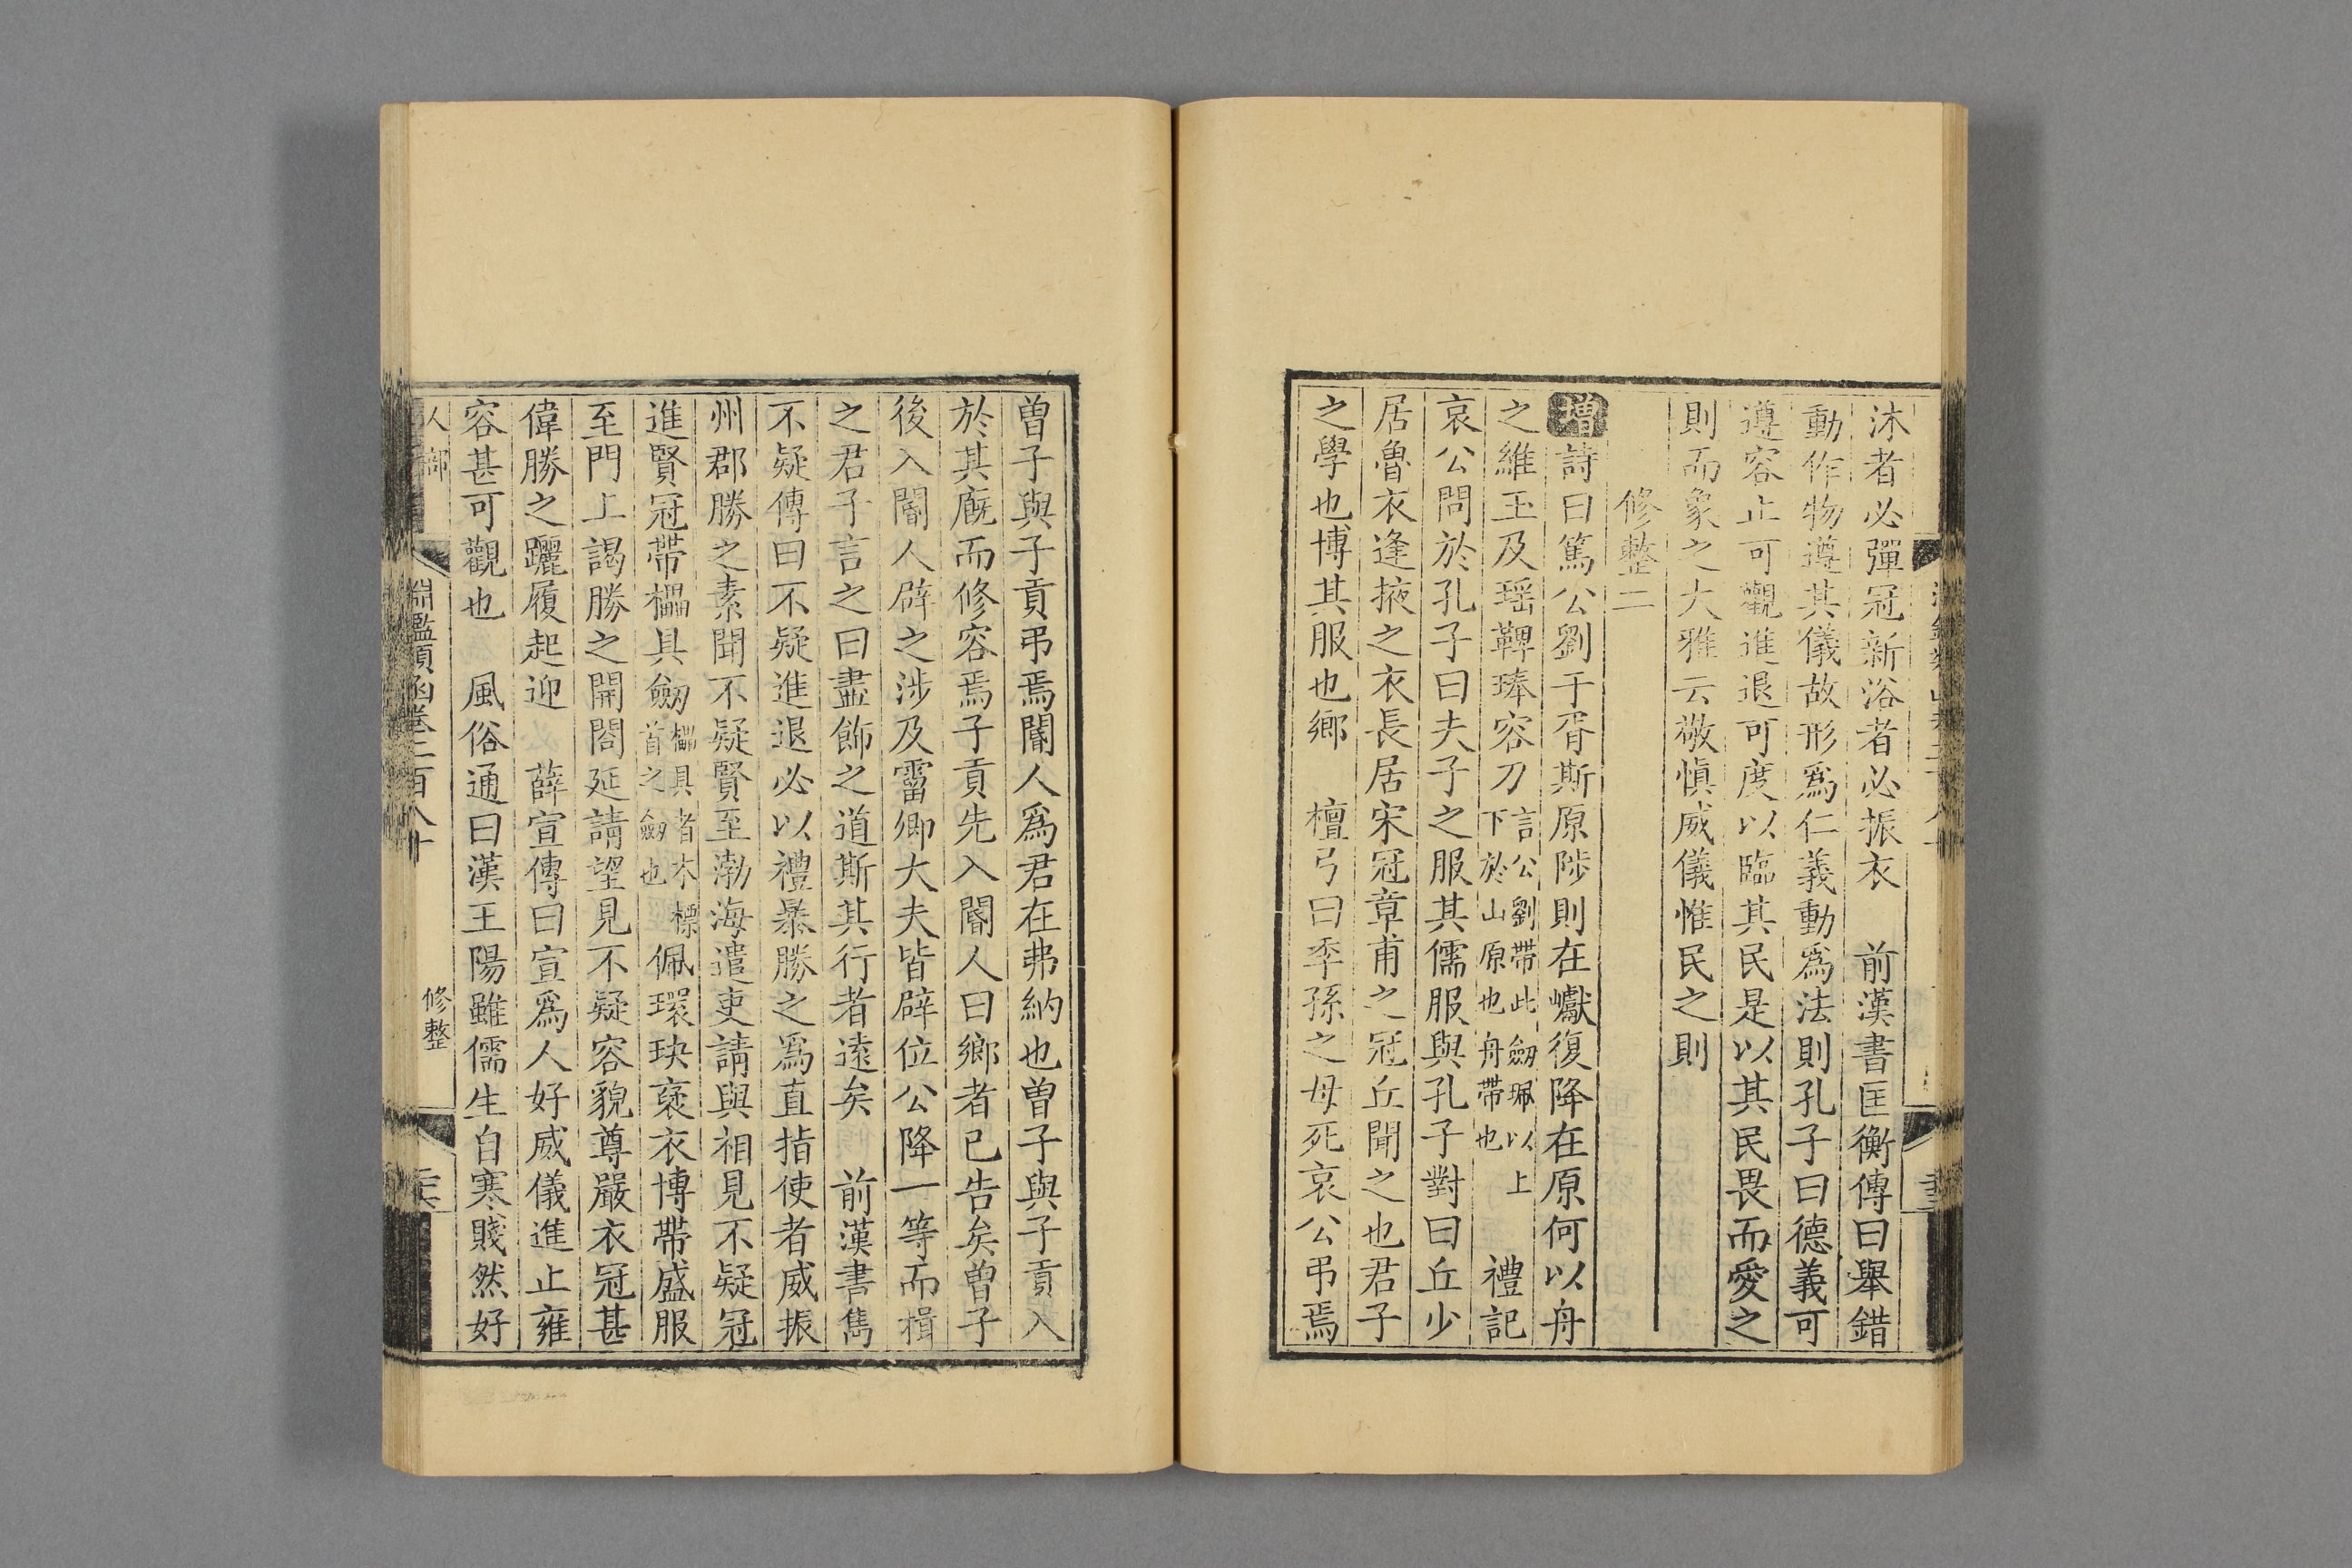 沐者必彈冠新浴者必振衣　前漢書匡衡傳曰舉錯
動作物遵其儀故形爲仁義動爲法則孔子曰德義可
遵容止可觀進退可度以臨其民是以其民畏而愛之
則而象之大雅云敬愼威儀惟民之則
修整二
增詩曰篤公劉于胥斯原陟則在巘復降在原何以舟
之維玉及瑶鞞琫容刀言公劉帶此劔珮以上下於山原也舟帶也　禮記
哀公問於孔子曰夫子之服其儒服與孔子對曰丘少
居魯衣逢掖之衣長居宋冠章甫之冠丘聞之也君子
之學也博其服也鄉　檀弓曰季孫之母死哀公弔焉
曾子與子貢弔焉閽人爲君在弗納也曾子與子貢入
於其廐而修容焉子貢先入閽人曰鄉者已告矣曾子
後入閽人辟之涉及霤卿大夫皆辟位公降一等而揖
之君子言之曰盡飾之道斯其行者遠矣　前漢書雋
不疑傳曰不疑進退必以禮暴勝之爲直指使者威振
州郡勝之素聞不疑賢至渤海遣吏請與相見不疑冠
進賢冠帶櫑具劔櫑具者木標首之劔也佩環玦褒衣博帶盛服
至門上謁勝之開閤延請望見不疑容貌尊嚴衣冠甚
偉勝之躧履起迎　薛宣傳曰宣爲人好威儀進止雍
容甚可觀也　風俗通曰漢王陽雖儒生自寒賤然好
人部
淵鑑類函卷二百八十
修整